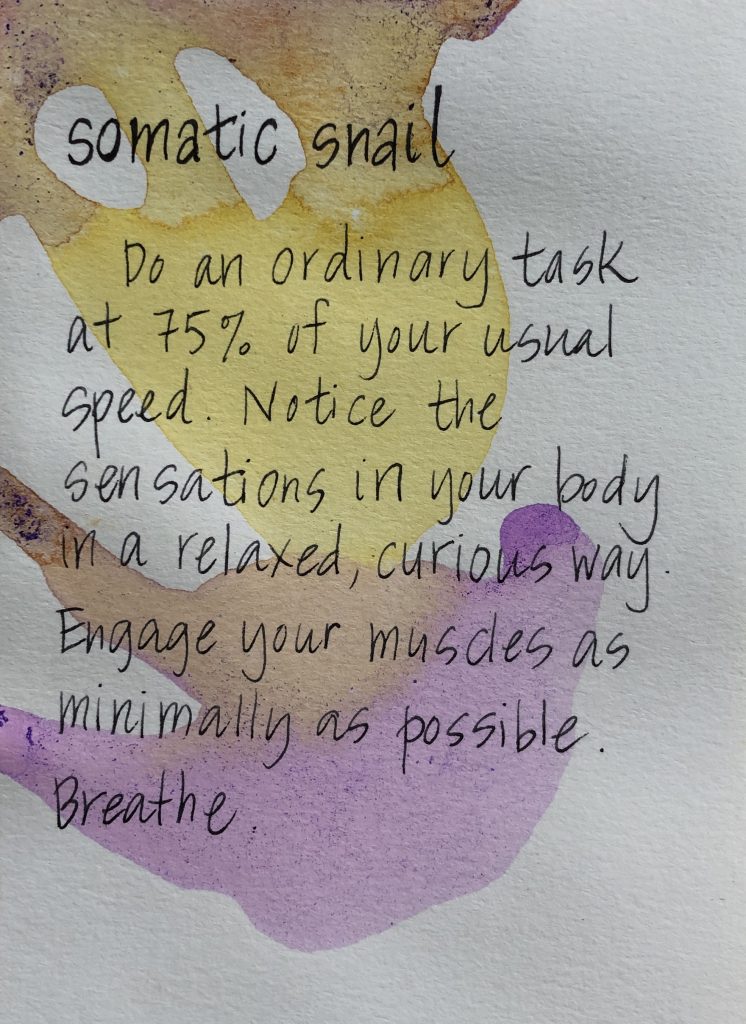 somatic snail
Do an ordinary task
at 75% of your usual
speed. Notice the
sensations in your body
in a relaxed, curious way.
Engage your muscles as
minimally as possible.
Breathe